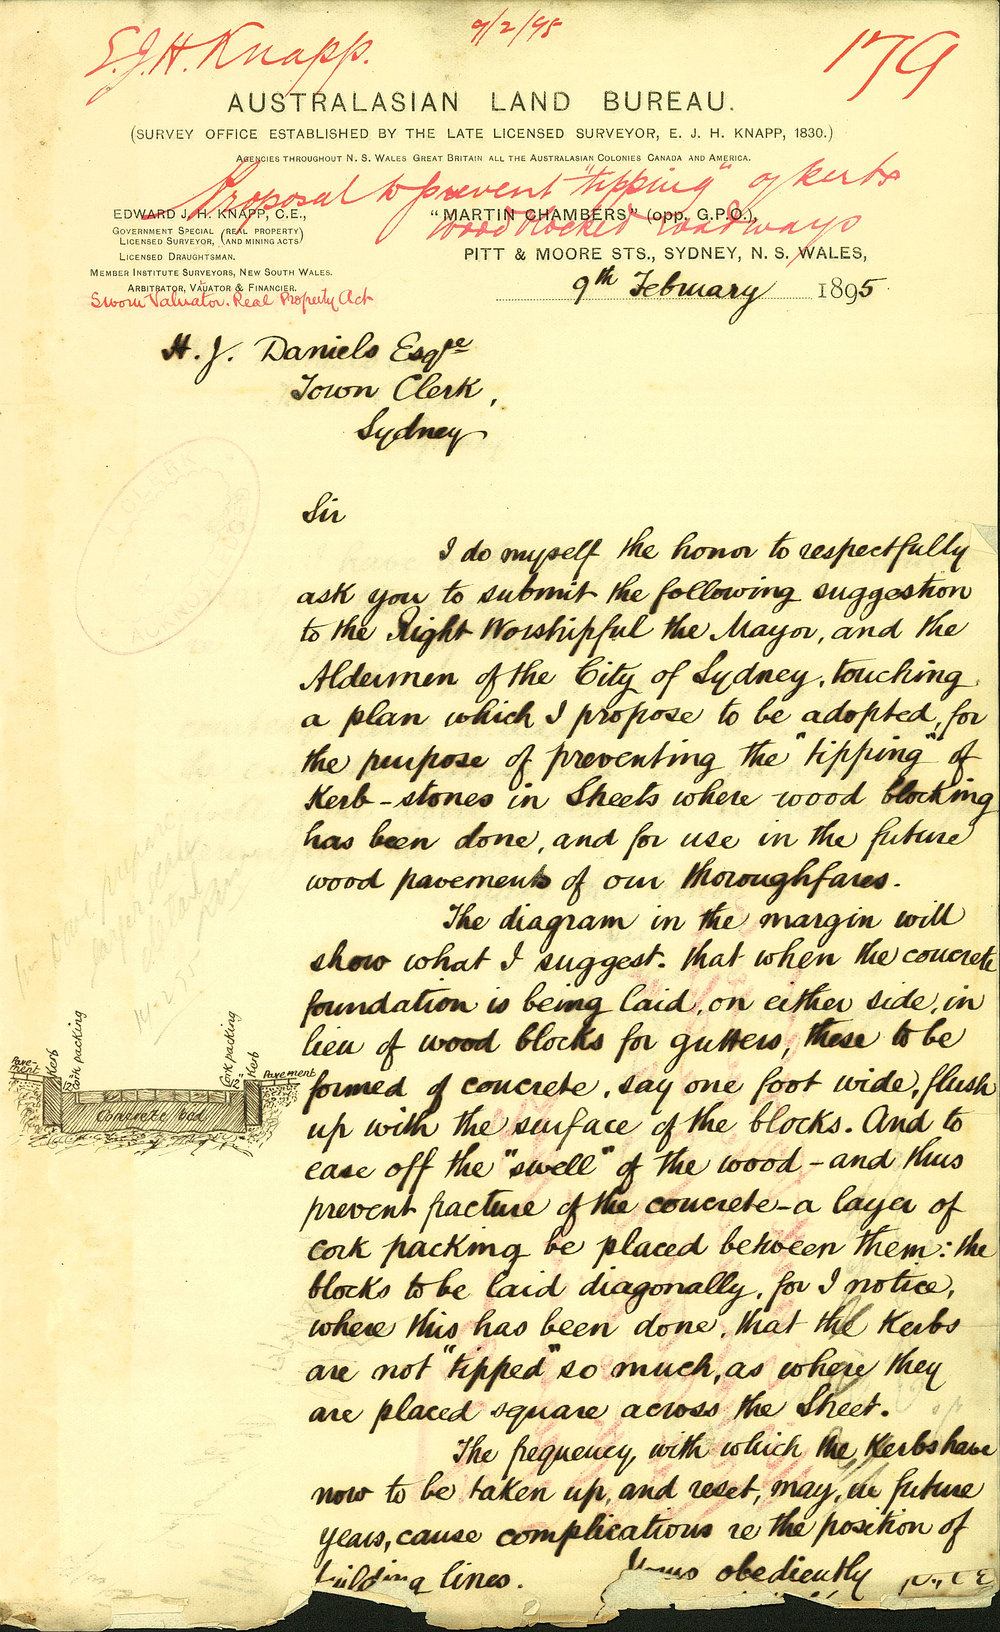 9/2/95
E.J.H. Knapp.
179
AUSTRALASIAN LAND BUREAU.
(SURVEY OFFICE ESTABLISHED BY THE LATE LICENSED SURVEYOR, E. J. H. KNAPP, 1830.)
AGENCIES THROUGHOUT N. S. WALES GREAT BRITAIN ALL THE AUSTRALASIAN COLONIES CANADA AND AMERICA.
Proposal to prevent "tipping" of kerbs
wood blocked roadways
EDWARD J. H. KNAPP, C.E.,
GOVERNMENT SPECIAL (REAL PROPERTY
LICENSED SURVEYOR, AND MINING ACTS)
LICENSED DRAUGHTSMAN.
MEMBER INSTITUTE SURVEYORS, NEW SOUTH WALES.
ARBITRATOR, VALUATOR & FINANCIER.
Sworn Valuator. Real Property Act
"MARTIN CHAMBERS" (opp. G.P.O.),
PITT & MOORE STS., SYDNEY, N. S. WALES,
9th February 1895
H. J. Daniels Esqre
Town Clerk,
Sydney
Sir
I do myself the honor to respectfully
ask you to submit the following suggestion
to the Right Worshipful the Mayor, and the
Aldermen of the City of Sydney, touching
a plan which I propose to be adopted, for
the purpose of preventing the "tipping" of
Kerb-stones in Streets where wood blocking
has been done, and for use in the future
wood pavements of our thoroughfares.
The diagram in the margin will
show what I suggest. that when the concrete
foundation is being laid, on either side, in
lieu of wood blocks for gutters, these to be
formed of concrete, say one foot wide, flush
up with the surface of the blocks. And to
ease off the "swell" of the wood - and thus
prevent fracture of the concrete - a layer of
cork packing be placed between them: the
blocks to be laid diagonally, for I notice,
where this has been done, that the Kerbs
are not "tipped" so much, as where they
are placed square across the Street.
The frequency, with which the Kerbs have
now to be taken up, and reset, may, in future
years, cause complications re the position of
building lines.
Yours obediently
Pavement
Kerb
2"
Cork packing
Concrete bed
Cork packing
2"
Kerb
Pavement